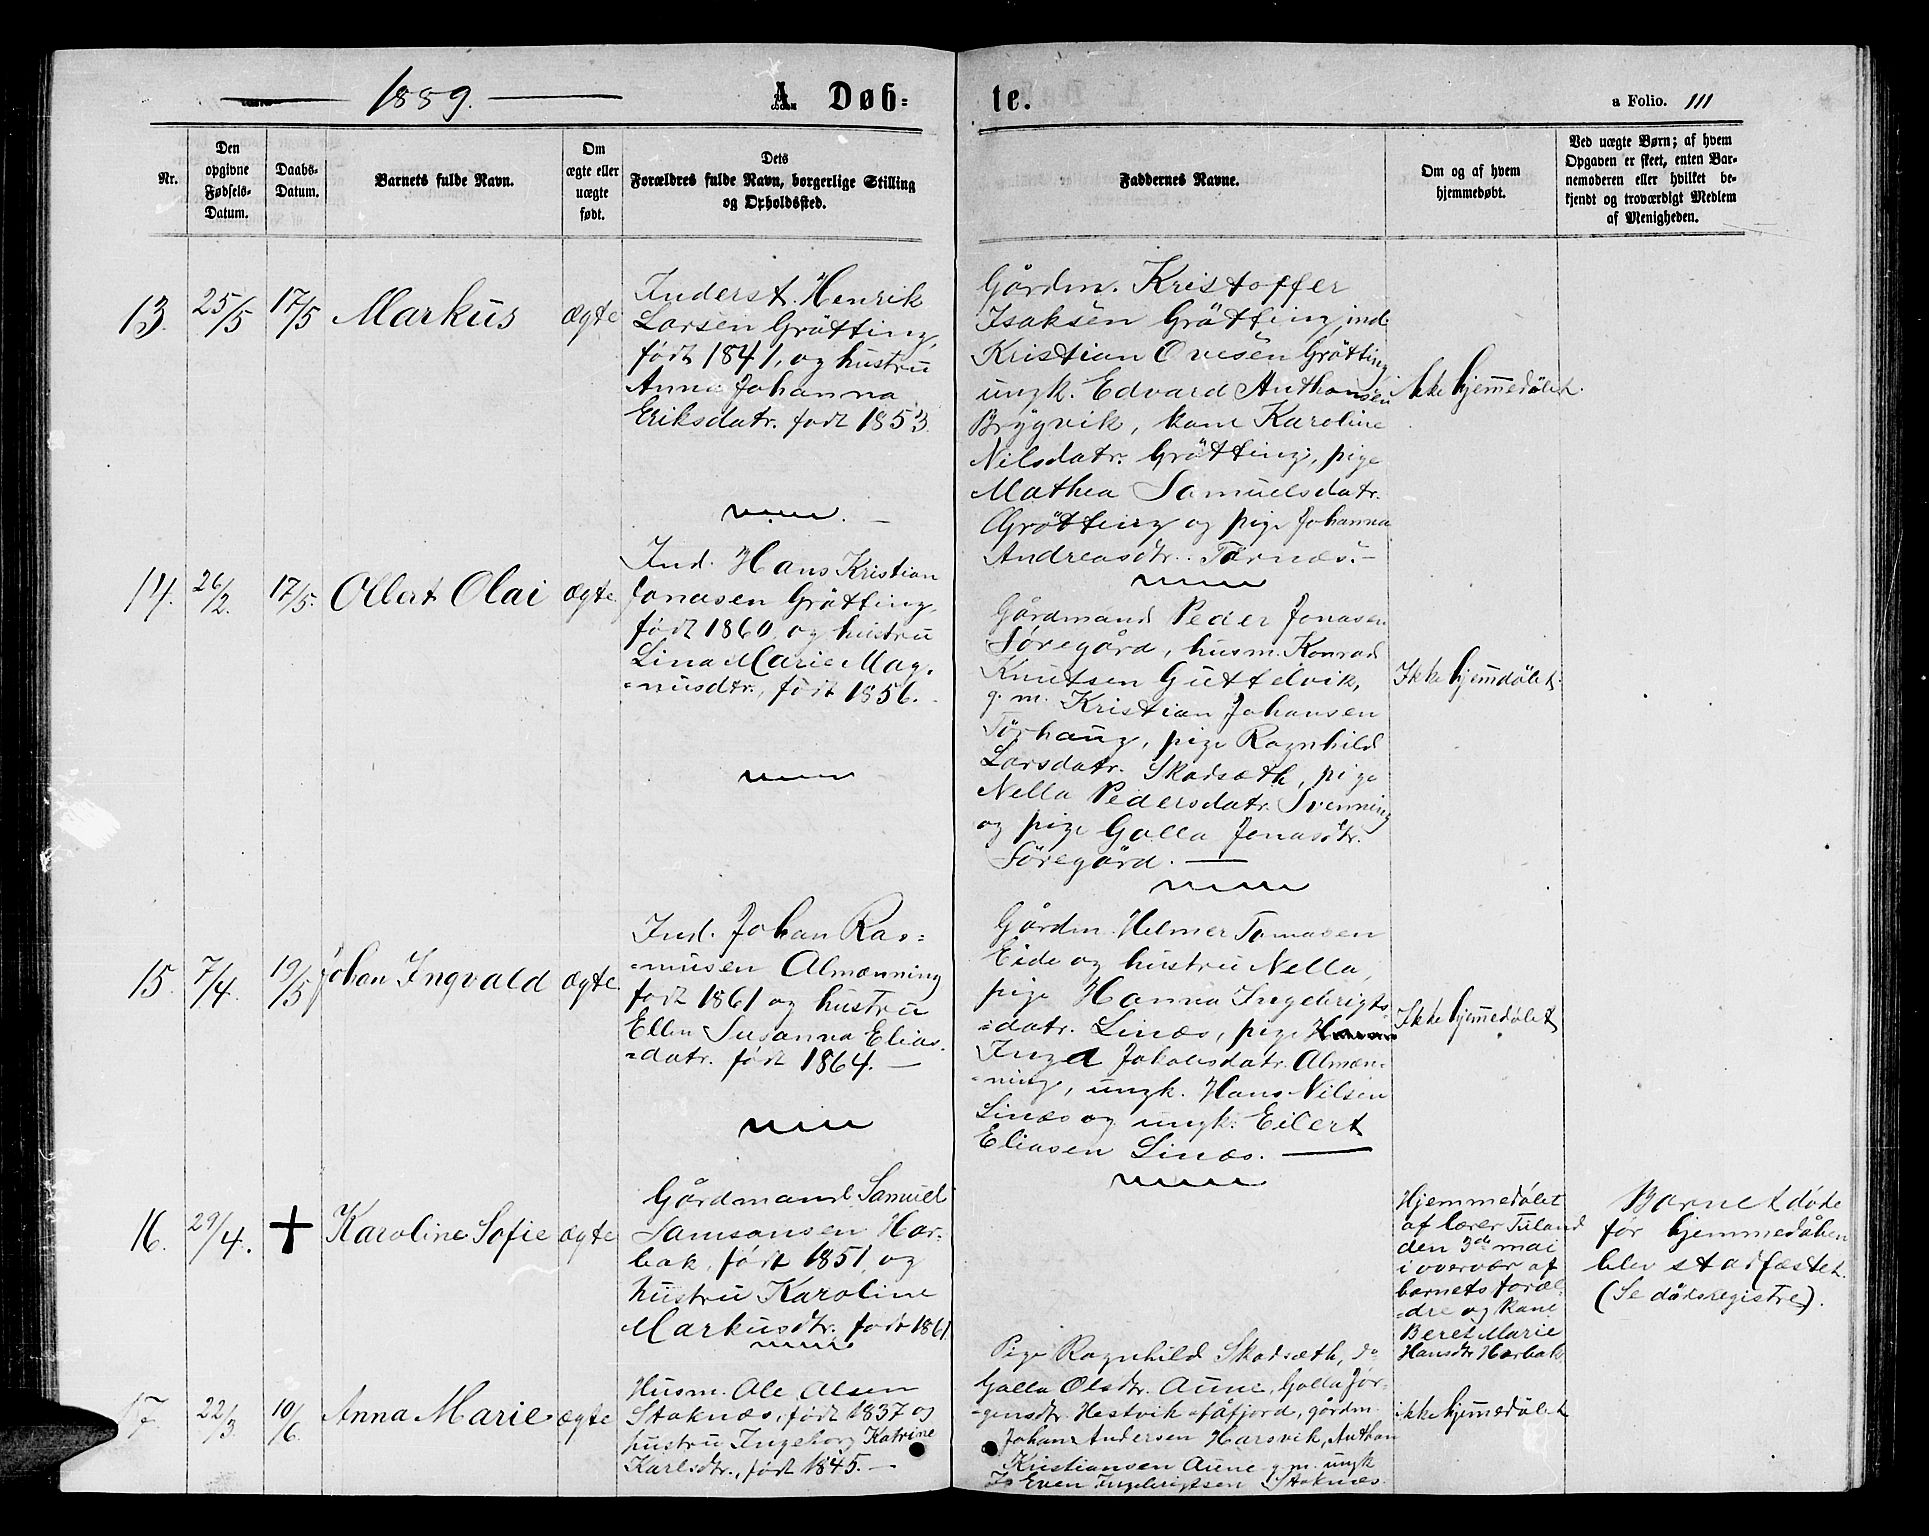 1889.
A. Døb-
te.
a Folio. 111
Nr.
Den
opgivne
Fødsels-
Datum.
Daabs-
Datum.
Barnets fulde Navn.
Om
ægte eller
uægte
født.
Dets
Forældres fulde Navn, borgerlige Stilling
og Opholdssted.
Faddernes Navne.
Om og af hvem
hjemmedøbt.
Ved uægte Børn; af hvem
Opgaven er skeet, enten Bar-
nemoderen eller hvilket be-
kjendt og troværdigt Medlem
af Menigheden.
13.
25/5
17/5
Markus
ægte
Inderst. Henrik
Larsen Grötting,
født 1841, og hustru
Anna Johanna
Eriksdatr. født 1853
Gårdm. Kristoffer
Isaksen Grötting, ind.
Kristian Ovesen Grötting
ungk. Edvard Anthonsen
Brygvik, kone Karoline
Nilsdatr. Grötting, pige
Mathea Samuelsdatr.
Grötting og pige Johanna
Andreasdtr. Tårnæs.
Ikke hjemmedöbt.
14.
26/2.
17/5.
Ollert Olai
ægte.
Ind. Hans Kristian
Jonasen Grötting,
född 1860, og hustru
Lina Marie Mag-
=nusdtr., född 1856.
Gårdmand Peder Jonasen
Söregård, husm. Konrad
Knutsen Guttelvik,
g. m. Kristian Johansen
Törhaug, pige Ragnhild
Larsdatr. Skadsæth, pige
Nella Pedersdatr. Svenning
og pige Golla Jonasdtr.
Söregård.
Ikke hjemdöbt.
15.
7/4.
19/5
Johan Ingvald
ægte.
Ind. Johan Ras=
=musen Almænning
født 1861 og hustru
Ellen Susanna Elias-
=datr. født 1864.
Gårdm. Helmer Tomasen
Eide og hustru Nella,
pige Hanna Ingebrigts-
=datr. Linæs, pige
Inga Jakobsdatr. Almæn-
=ning, ungk. Hans Nilsen
Linæs og ungk. Eilert
Eliasen Linæs.
Ikke hjemmedöbt
16.
29/4.
+
Karoline Sofie
ægte
Gårdmand Samuel
Samsonsen Har-
bak, født 1851, og
hustru Karoline
Markusdtr. født 1861
Hjemmedöbt
af lærer Tuland
den 3de mai
i overvær af
barnets foræl-
=dre og kone
Beret Marie
Hansdtr Harbak
Barnet döde
för hjemmedåben
blev stadfæstet.
(Se dödsregistre).
17.
22/3
10/6
Anna Marie
ægte
Husm. Ole Olsen
Stoknæs, født 1837 og
hustru Ingeborg Katrine
Karlsdtr., født 1845.
Pige Ragnhild Skadsæth, do
Golla Olsdtr. Aune, Golla Jör-
=gensdtr. Hestvik Åfjord, gårdm.
Johan Andersen Harsvik, Anthon
Kristiansen Aune g. m. ungk
Even Ingebrigtsen Stoknæs.
ikke hjemmedöbt